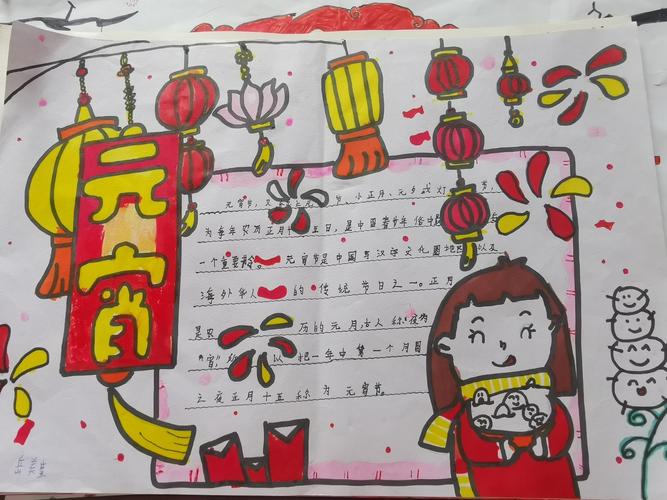 元宵
元宵节,又 节、小正月、元夕或灯 节,
为每年农历正月十五日,是中国春节年俗中
一个重要 。元宵节是中国与汉字文化圈地区以及
海外华人 的传统节日之一。正月
是农 历的元月,古人称"夜"为
"宵", 以 把一年中第一个月圆
之夜正月十五称为元宵节。